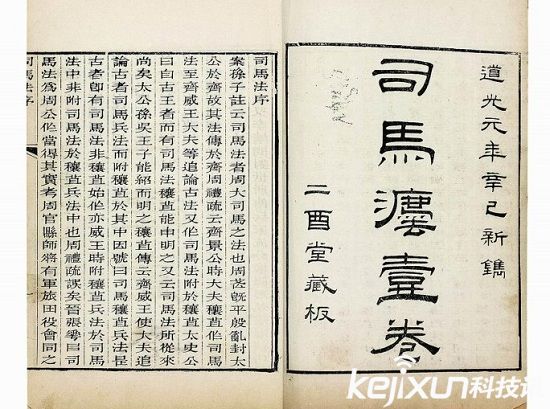 道光元年辛巳新鐫
司馬灋壹卷
二酉堂藏板
司馬法序
案孫子註云司馬法者周大司馬之法也周旣平般亂封太
公於齊故其法傳於齊周禮疏云齊景公時大夫穰苴作司馬
法至齊威王大夫等追論古法又作司馬法附於穰苴太史公
曰自古王者而有司馬法穰苴能申明之又云司馬法所從來
尚矣太公孫吳王子能紹而明之穰苴傳云齊威王使大夫追
論古者司馬兵法而附穰苴於其中因號曰司馬穰苴兵法是
古者卽有司馬法非穰苴始作亦威王時附穰苴兵法於司馬
法中非附司馬法於穰苴兵法中也周禮疏誤矣晉張華曰司
馬法爲周公作當得其實考周官縣師將有軍旅田役會同之
司馬法序
kejixun科技讯